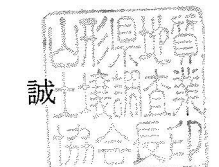 山形県地質
誠
土壌調査業
協会長印